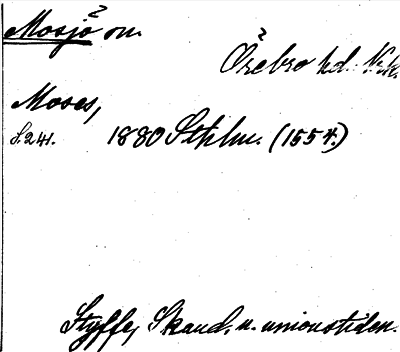 Mosjö² sn.
Örebro hd. Nke.
Moses,
S. 241. 1880 Sthlm. (1554.)
Styffe, Skand. u. unionstiden.